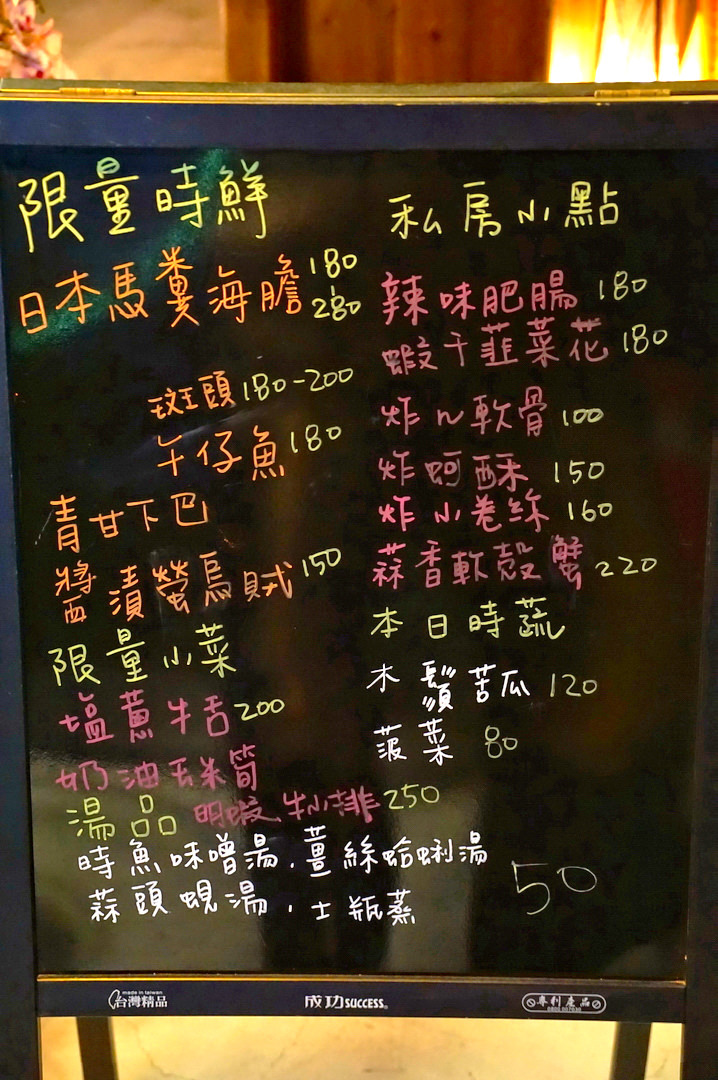 限量時鮮
日本馬糞海膽 180-280
斑頭 180-200
午仔魚 180
青甘下巴
醬漬螢烏賊 150
限量小菜
塩蔥牛舌 200
奶油玉米筍
明蝦牛小排 250
湯品
時魚味噌湯．薑絲蛤蜊湯
蒜頭蜆湯，土瓶蒸
50
私房小點
辣味肥腸 180
蝦干韮菜花 180
炸ㄟ軟骨 100
炸蚵酥 150
炸小卷絲 160
蒜香軟殼蟹 220
本日時蔬
木鬚苦瓜 120
菠菜 80
made in taiwan
台灣精品
成功 SUCCESS®
專利產品